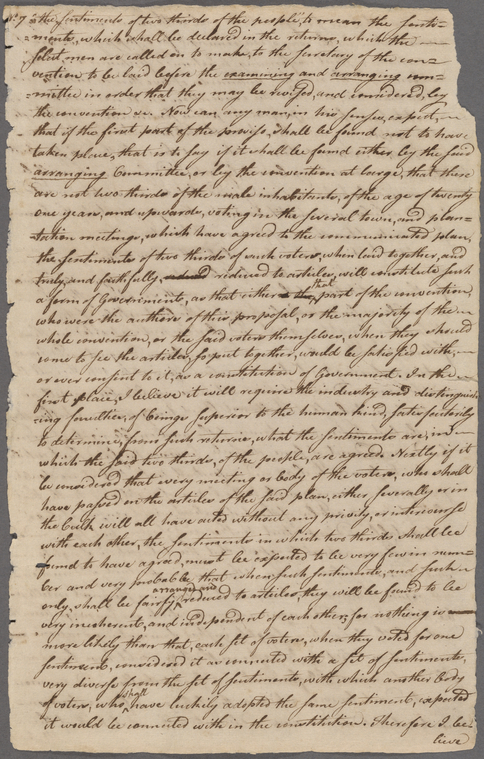 No 7 "the sentiments of two thirds of the people", to mean the senti-
-ments, which shall be declared in the returns, which the
select men are called on to make, to the secretary of the con-
vention to be laid before the examining and arranging com-
mittee in order that they may be revised, and considered, by
the convention &c. Now can any man, in his senses, expect,
that if the first part of the proviso, shall be found not to have
taken place, that is to say if it shall be found either by the said
arranging Committee, or by the convention at large, that there
are not two thirds of the male inhabitants, of the age of twenty
one years, and upwards, voting in the several town, and plan-
tation meetings, which have agreed to the communicated plan,
the sentiments of two thirds of such voters, when laid together, and
truly, and faithfully, reduced to articles, will constitute such
a form of Government, as that either that part of the convention,
who were the authors of this proposal, or the majority of the
whole convention, or the said voters themselves, when they should
come to see the articles, so put together, would be satisfied with,
or ever consent to it, as a constitution of Government. In the
first place, I believe it will require the industry and distinguish-
ing faculties, of beings superior to the human kind, satisfactorily
to determine, from such returns, what the sentiments are, in
which the said two thirds, of the people, are agreed. Nextly if it
be considered that every meeting or body of the voters, who shall
have passed on the articles of the said plan, either severally or in
the Cult will all have acted without any privity or intercourse
with each other, the sentiments in which two thirds shall be
found to have agreed, must be expected to be very few in num-
ber and very probable that when such sentiments, and such
only, shall be fairly arranged and reduced to articles, they will be found to be
very incoherent, and independent of each other; for nothing is
more likely than that, each set of voters, when they voted for one
sentiment, considered it as connected with a set of sentiments,
very diverse from the set of sentiments, with which another body
of voters, who shall have luckily adopted the same sentiment, expected
it would be connected with in the constitution. Therefore I be-
lieve